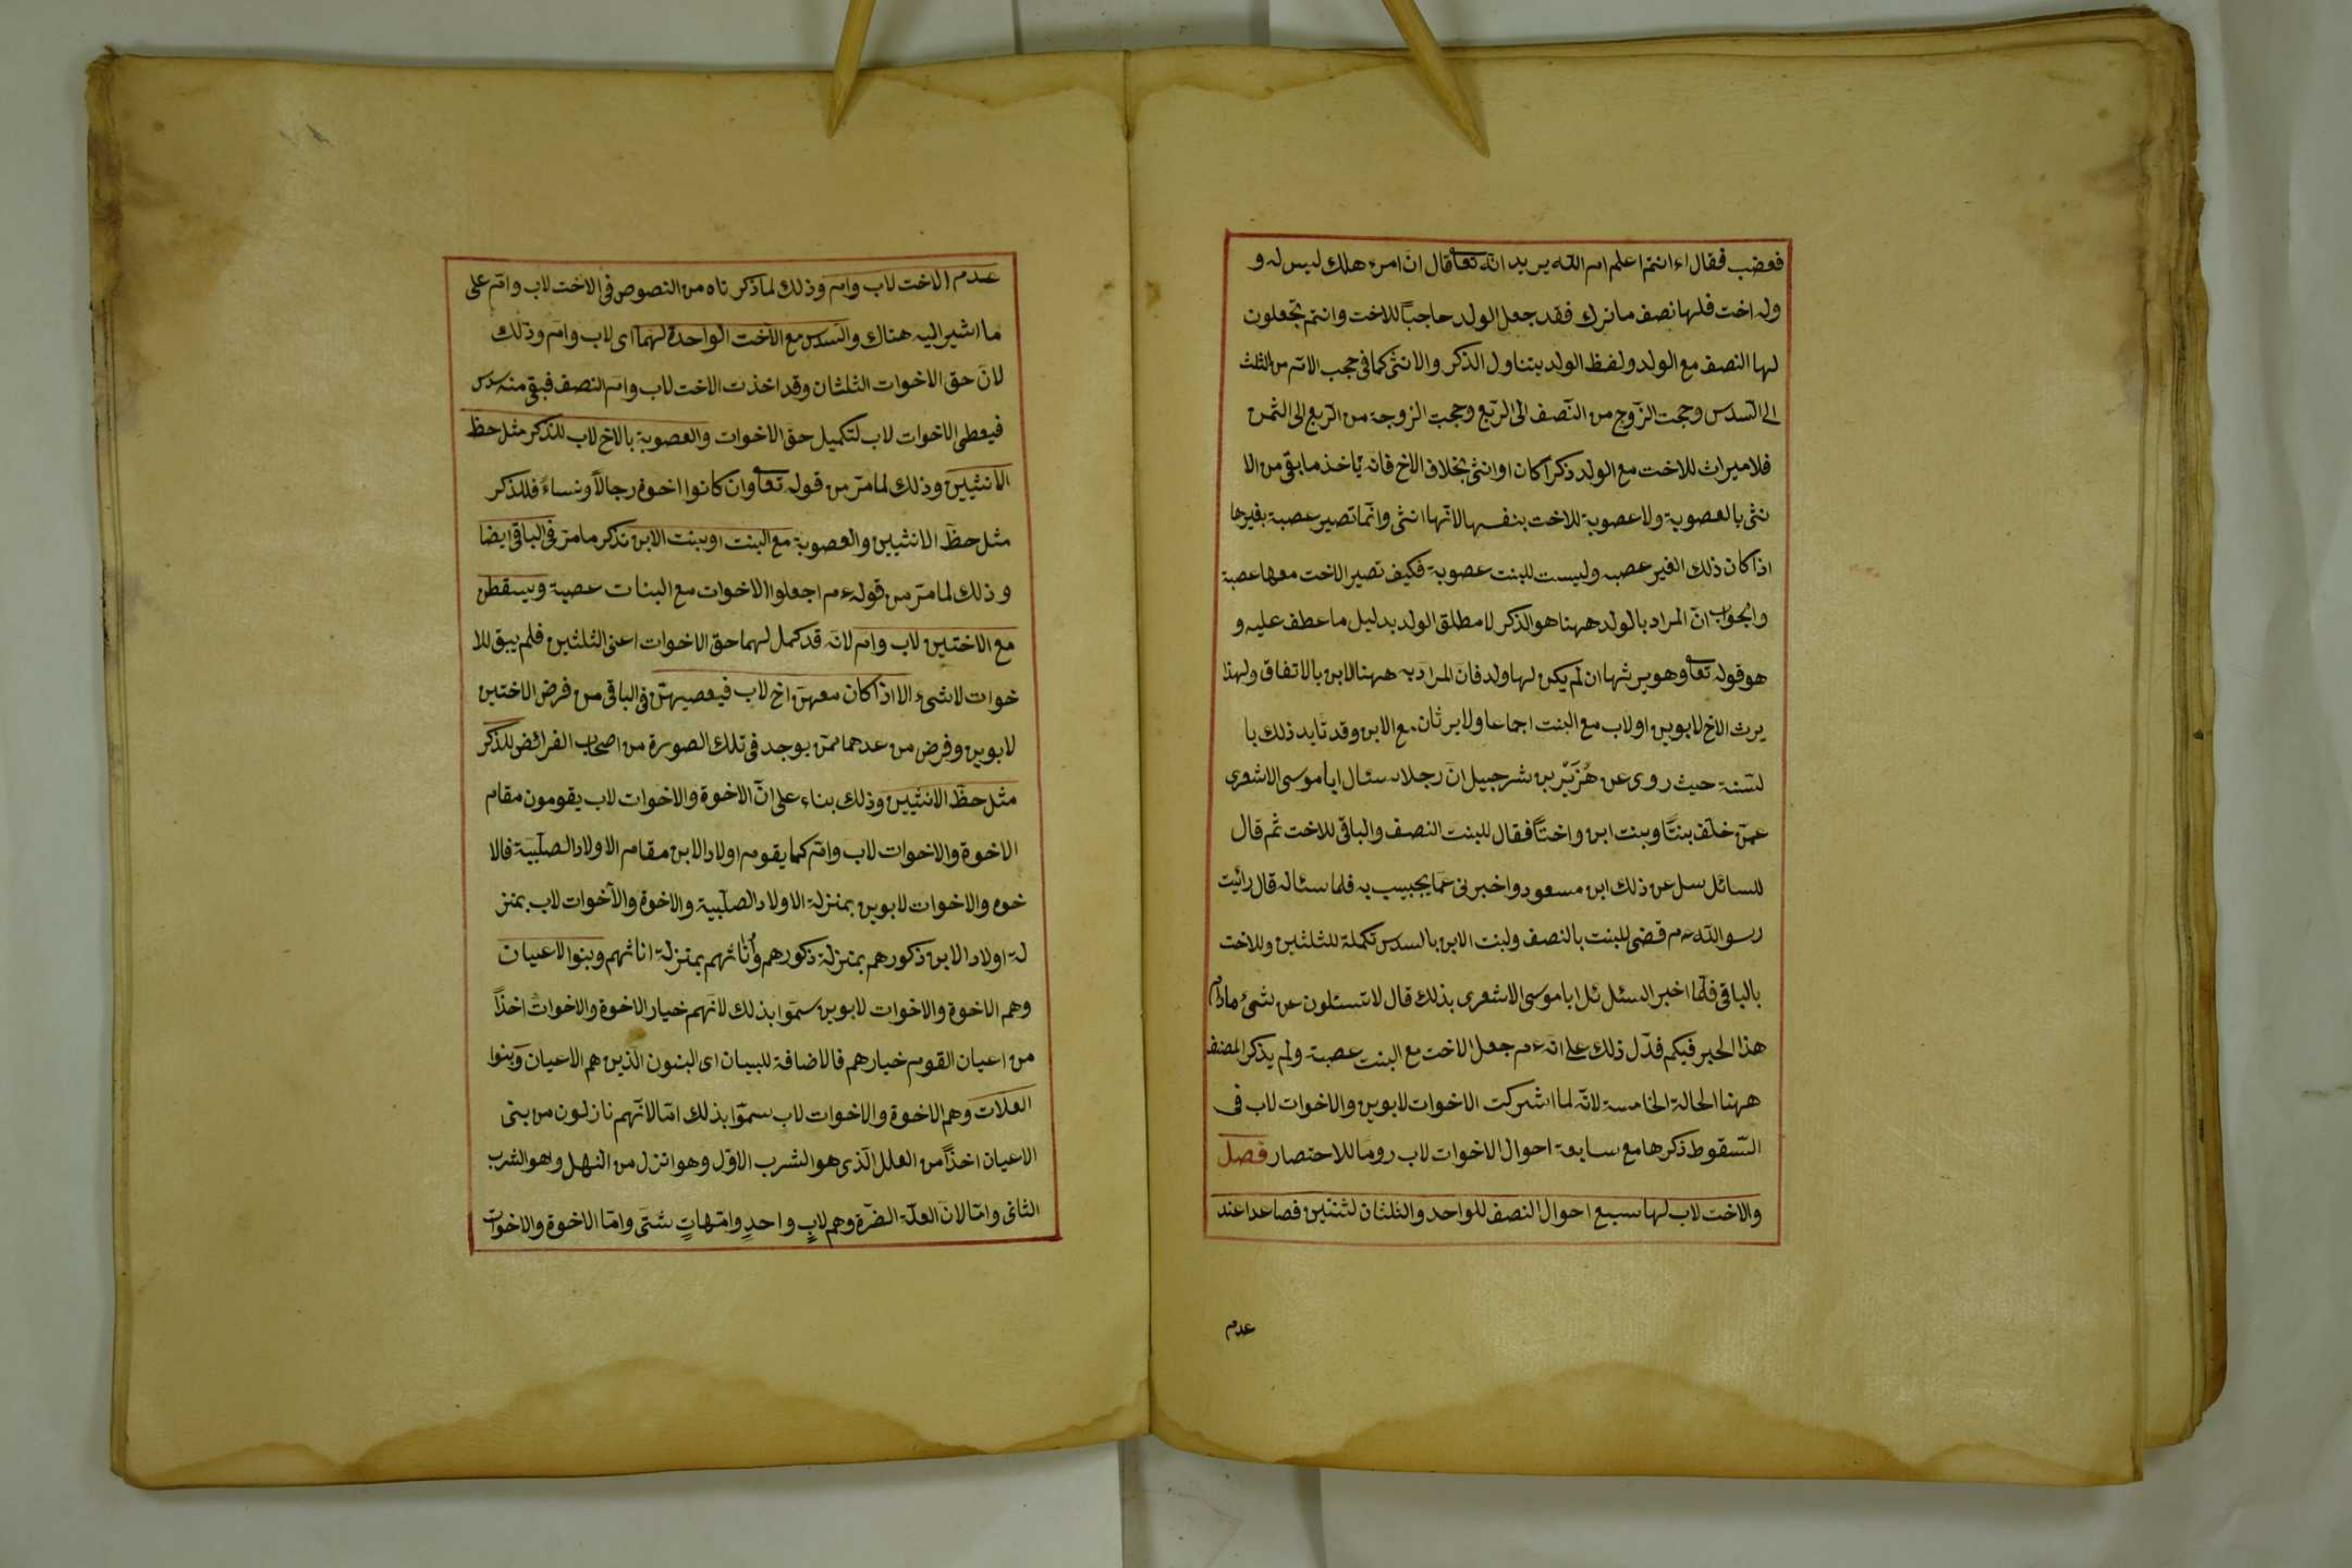 فغضب فقال ءانتم اعلم ام الله يريد انه تعا قال ان امرء هلك ليس له و
وله اخت فلها نصف ما ترك فقد جعل الولد حاجباً للاخت وانتم تجعلون
لها النصف مع الولد ولفظ الولد يتناول الذكر والانثى كما فى حجب الام من الثلث
الى السدس وحجب الزوج من النصف الى الربع وحجب الزوجة من الربع الى الثمن
فلا ميراث للاخت مع الولد ذكرا كان او انثى بخلاف الاخ فانه يأخذ ما بقى من الا
نثى بالعصوبة ولا عصوبة للاخت بنفسها لانها انثى وانما تصير عصبة بغيرها
اذا كان ذلك الغير عصبه وليست للبنت عصوبة فكيف تصير الاخت معها عصبة
والجواب ان المراد بالولد ههنا هو الذكر لا مطلق الولد بدليل ما عطف عليه و
هو قوله تعا وهو يرثها ان لم يكن لها ولد فان المراد به ههنا الابن بالاتفاق ولهذا
يرث الاخ لابوين او لاب مع البنت اجماعا ولا يرثان مع الابن وقد تايد ذلك با
لسنة حيث روى عن هُزَيْر بن شرجبيل ان رجلا سئال ابا موسى الاشعرى
عمن خلف بنتًا وبنت ابن واختًا فقال للبنت النصف والباقى للاخت ثم قال
للسائل سل عن ذلك ابن مسعود واخبرنى عما يجبيب به فلما سئاله قال رائيت
رسو الله عم قضى للبنت بالنصف ولبنت الابن بالسدس تكملة للثلثين وللاخت
بالباقى فلما اخبر السئل ئل ابا موسى الاشعرى بذلك قال لا تسئلون عن شىء مادام
هذا الحبر فيكم فدل ذلك على انه عم جعل الاخت مع البنت عصبة ولم يذكر المصنف
ههنا الحالة الخامسة لانه لما اشتركت الاخوات لابوين والاخوات لاب فى
السقوط ذكرها مع سابعة احوال الاخوات لاب روما للاختصار فصل
والاخت لاب لها سبع احوال النصف للواحد والثلثان لثنتين فصاعدا عند
عدم
عدم الاخت لاب وام وذلك لما ذكرناه من النصوص فى الاخت لاب وام على
ما اشير اليه هناك والسدس مع الاخت الواحدة لهما اى لاب وام وذلك
لان حق الاخوات الثلثان وقد اخذت الاخت لاب وام النصف فبقى منه سدس
فيعطى الاخوات لاب لتكميل حق الاخوات والعصوبة بالاخ لاب للذكر مثل حظ
الانثيين وذلك لما مر من قوله تعا وان كانوا اخوة رجالاً ونساءً فللذكر
مثل حظ الانثيين والعصوبة مع البنت او بنت الابن نذكر ما مر فى الباقى ايضا
وذلك لما مر من قوله عم اجعلوا الاخوات مع البنات عصبة ويسقطن
مع الاختين لاب وام لانه قد كمل لهما حق الاخوات اعنى الثلثين فلم يبق للا
خوات لا شىء الا اذا كان معهن اخ لاب فيعصبهن فى الباقى من فرض الاختين
لابوين وفرض من عدهما ممن يوجد فى تلك الصورة من اصحاب الفرائض للذكر
مثل حظ الانثيين وذلك بناء على ان الاخوة والاخوات لاب يقومون مقام
الاخوة والاخوات لاب وام كما يقوم اولاد الابن مقام الاولاد الصلبية فالا
خوه والاخوات لابوين بمنزلة الاولاد الصلبية والاخوة والاخوات لاب بمنز
لة اولاد الابن ذكورهم بمنزلة ذكورهم وأناثهم بمنزلة اناثهم وبنوا الاعيان
وهم الاخوة والاخوات لابوين سموا بذلك لانهم خيار الاخوة والاخوات اخذاً
من اعيان القوم خيارهم فالاضافة للبيان اى البنون الذين هم الاعيان وبنوا
العلات وهم الاخوة والاخوات لاب سموا بذلك اما لانهم نازلون من بنى
الاعيان اخذاً من العلل الذى هو الشرب الاول وهو انزل من النهل وهو الشرب
الثانى واما لان العلة الضرة وهم لابٍ واحدٍ وامهاتٍ شتى واما الاخوة والاخوات